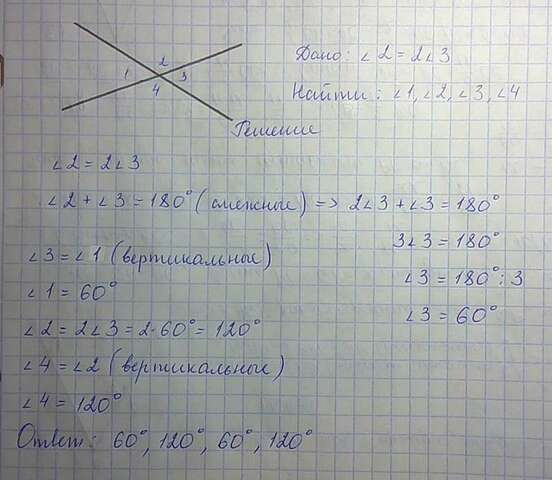 2
1 3
4
Дано: ∠2 = 2∠3
Найти: ∠1, ∠2, ∠3, ∠4
Решение
∠2 = 2∠3
∠2 + ∠3 = 180° (смежные) => 2∠3 + ∠3 = 180°
3∠3 = 180°
∠3 = 180° : 3
∠3 = 60°
∠3 = ∠1 (вертикальные)
∠1 = 60°
∠2 = 2∠3 = 2·60° = 120°
∠4 = ∠2 (вертикальные)
∠4 = 120°
Ответ: 60°, 120°, 60°, 120°